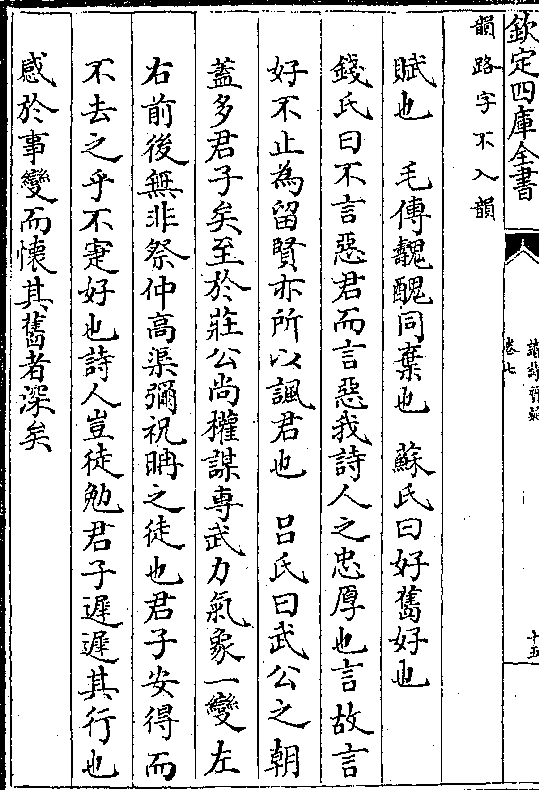 欽定四庫全書
卷七
十五
韻路字不入韻
賦也　毛傳魗醜同棄也　蘇氏曰好舊好也
錢氏曰不言惡君而言惡我詩人之忠厚也言故言
好不止為留賢亦所以諷君也　呂氏曰武公之朝
蓋多君子矣至於莊公尚權謀專武力氣象一變左
右前後無非祭仲高渠彌祝聃之徒也君子安得而
不去之乎不寁好也詩人豈徒勉君子遲遲其行也
感於事變而懷其舊者深矣